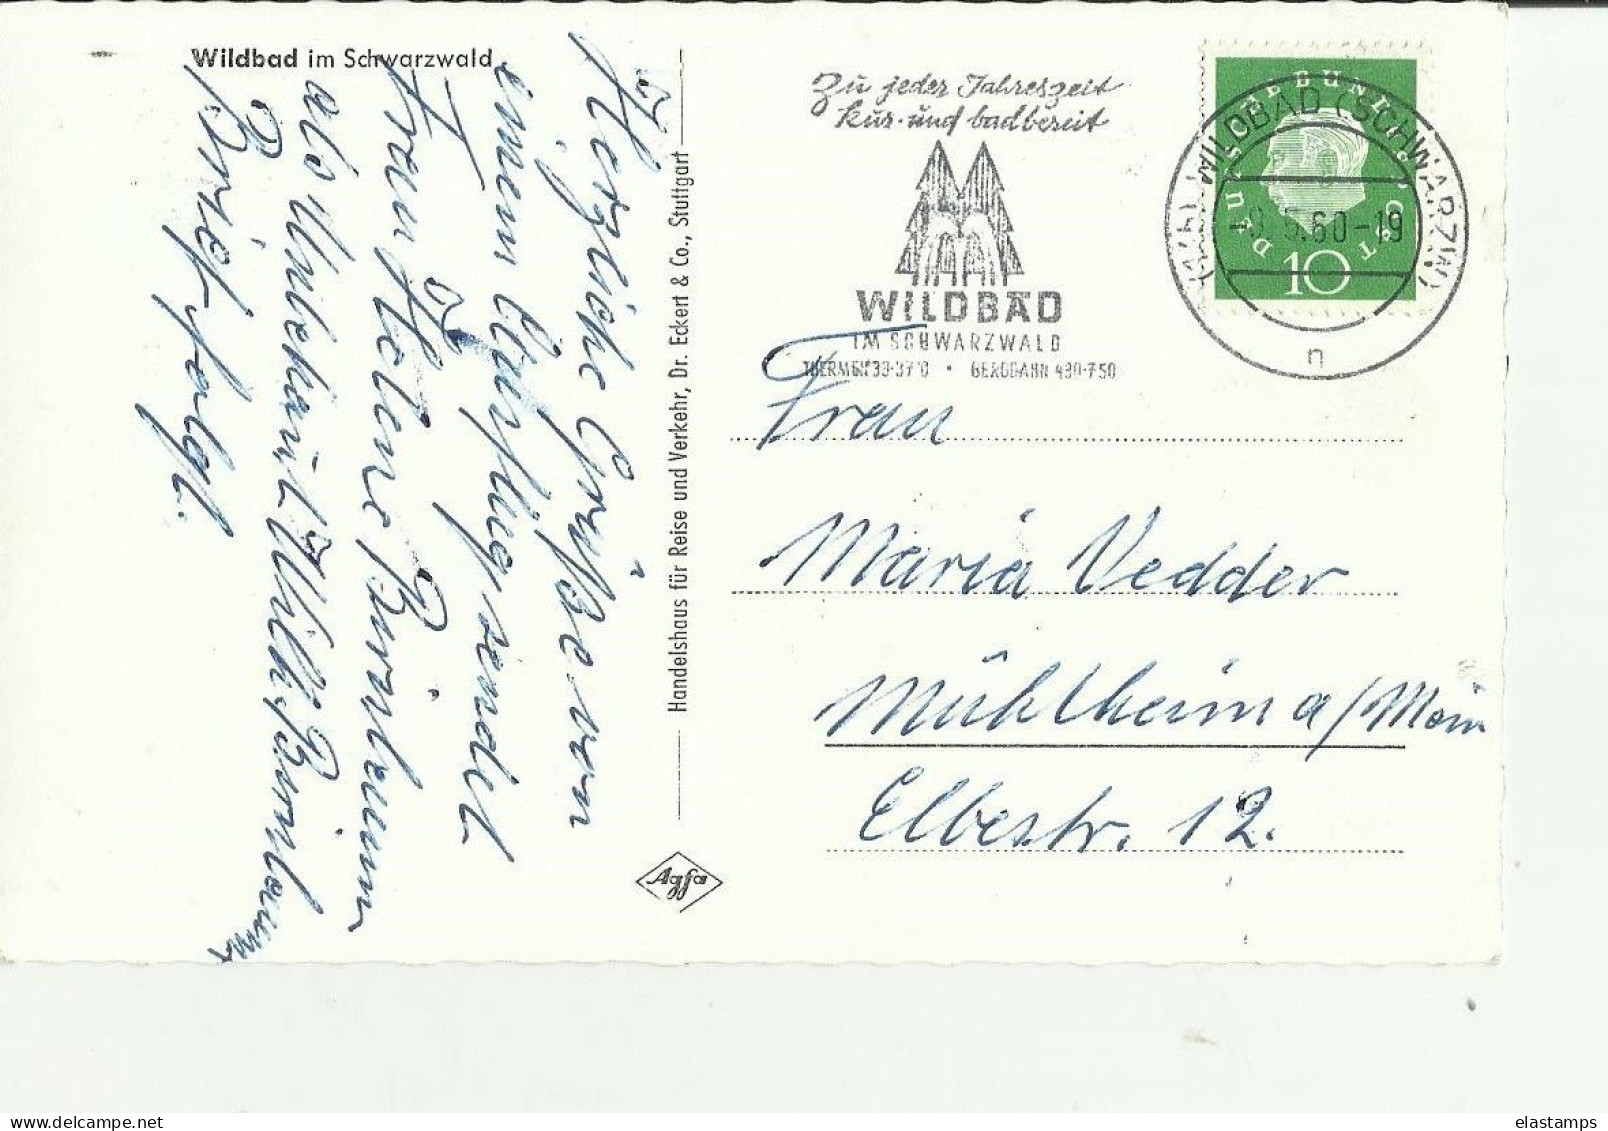 Wildbad im Schwarzwald
Herzliche Grüße von
einem Ausflug sendet
Frau Helene
als Unbekannt Wilh.
Brief folgt.
Handelshaus für Reise und Verkehr, Dr. Eckert & Co., Stuttgart
Agfa
Zu jeder Jahreszeit
kur- und badbereit
WILDBAD
IM SCHWARZWALD
THERMEN 33-37°C • BERGBAHN 430-750
WILDBAD (SCHWARZW)
-9.5.60-19
n
DEUTSCHE BUNDESPOST
10
Frau
Maria Vedder
Mühlheim a/Main
Elbestr. 12.
elastamps